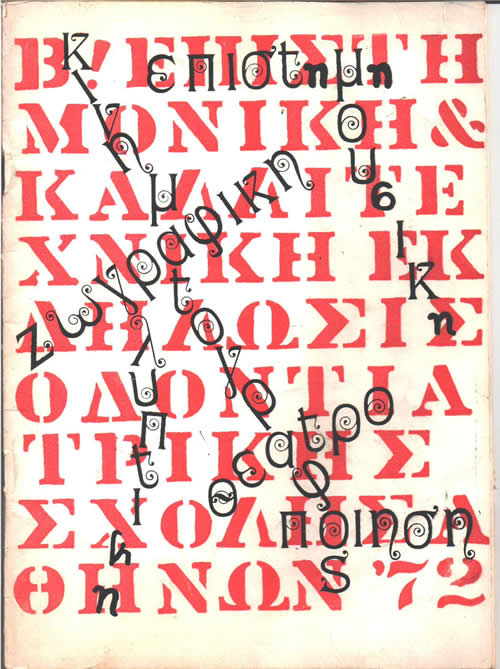 Β! ΕΠΙΣΤΗ
ΜΟΝΙΚΗ &
ΚΑΛΛΙΤΕ
ΧΝΙΚΗ ΕΚ
ΔΗΛΩΣΙΣ
ΟΔΟΝΤΙΑ
ΤΡΙΚΗΣ
ΣΧΟΛΗΣ Α
ΘΗΝΩΝ '72
επιστημη
κινηματογραφος
μουσικη
ζωγραφικη
γλυπτικη
θεατρο
ποιηση